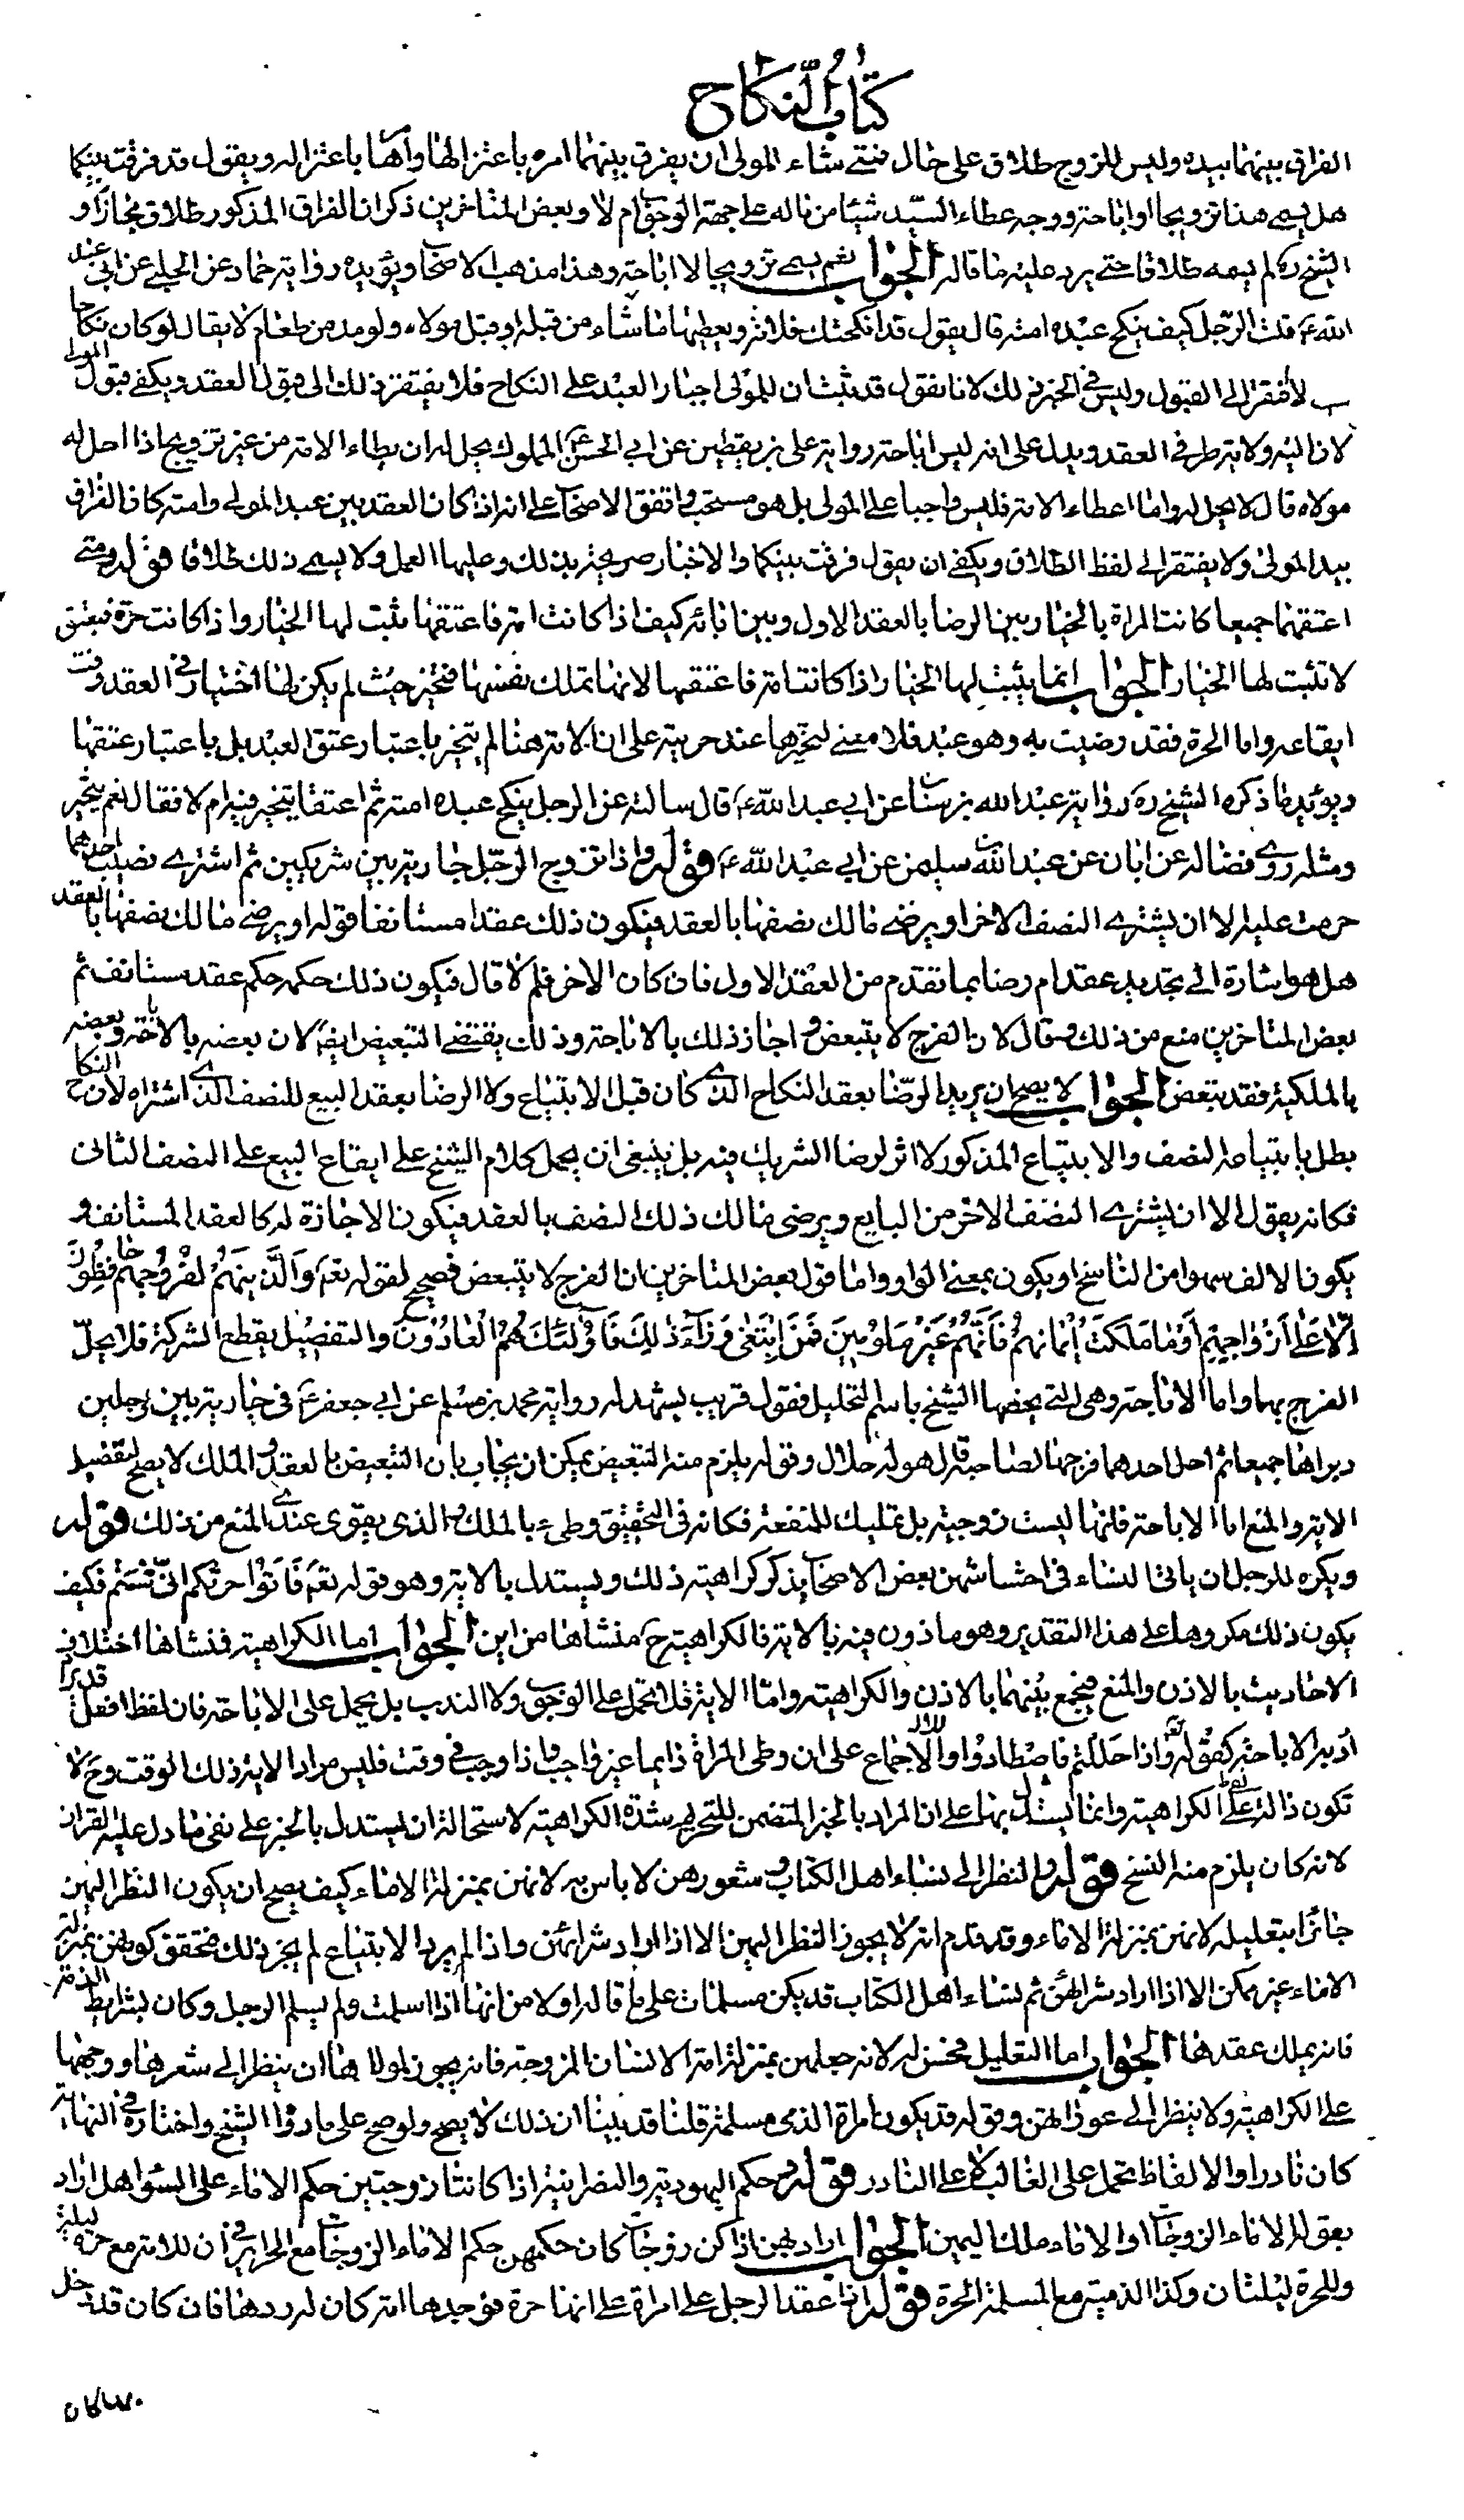 كتاب النكاح
الفراق بينهما بيده وليس للزوج طلاق على حال فمتى شاء المولى ان يفرق بينهما امره باعتزالها وامرها باعتزاله ويقول قد فرقت بينكما
هل يسمى هذا تزويجا او اباحة ووجه عطاء السيد شيئا من ماله على جهة الوجوب ام لا وبعض المتاخرين ذكر ان الفراق المذكور طلاق مجازا و
الشيخ ره لم يسمه طلاقا حتى يرد عليه ما قاله الجواب نعم يسمى تزويجا لا اباحة وهذا مذهب الاصحاب ويؤيده رواية حماد عن الحلبي عن ابي عبد
الله ع قلت الرجل كيف ينكح عبده امته قال يقول قد انكحتك فلانة ويعطيها ما شاء من قبله او قبل مولاه ولو مد من طعام لا يقال لو كان نكاحا
لافتقر الى القبول وليس في الخبر ذلك لانا نقول قد ثبت ان للمولى اجبار العبد على النكاح فلا يفتقر ذلك الى قبول العقد ويكفى قبول المولى
لانا ليه ولاية طرفي العقد ويدل على انه ليس اباحة رواية على بن يقطين عن ابي الحسن ع المملوك يحل له ان يطاء الامة من غير تزويج اذا احل له
مولاه قال لا يحل له واما اعطاء الامة فليس واجبا على المولى بل هو مستحب واتفق الاصحاب على انه اذا كان العقد بين عبد المولى وامته كان الفراق
بيد المولى ولا يفتقر الى لفظ الطلاق ويكفى ان يقول فرقت بينكما والاخبار صريحة بذلك وعليها العمل ولا يسمى ذلك طلاقا قوله ومتى
اعتقهما جميعا كانت المراة بالخيار بين الرضا بالعقد الاول وبين ابائه كيف اذا كانت امة فاعتقها يثبت لها الخيار واذا كانت حرة فيعتق
لا تثبت لها الخيار الجواب انما يثبت لها الخيار اذا كانت امة فاعتقها لانها تملك نفسها فتخير حيث لم يكن لها اختيار في العقد وقت
ايقاعه واما الحرة فقد رضيت به وهو عبد فلا معنى لتخيرها عند حريته على ان الامة هنا لم يتخير باعتبار عتق العبد بل باعتبار عتقها
ويؤيد ما ذكره الشيخ ره رواية عبد الله بن سنان عن ابي عبد الله ع قال سالته عن الرجل ينكح عبده امته ثم اعتقها يتخير فيه ام لا فقال نعم يتخير
ومثله روى فضاله عن ابان عن عبد الله بن سليمن عن ابي عبد الله ع قوله واذا تزوج الرجل جارية بين شريكين ثم اشترى نصيب احدهما
حرمت عليه الا ان يشترى النصف الاخر او يرضى مالك نصفها بالعقد فيكون ذلك عقدا مستانفا قوله او يرضى مالك نصفها بالعقد
هل هو اشارة الى تجديد عقد ام رضا بما تقدم من العقد الاول فان كان الاخر فلم لا قال فيكون ذلك حكمه حكم عقد مستانف ثم
بعض المتاخرين منع من ذلك وقال لان الفرج لا يتبعض واجاز ذلك بالاباحة وذلك يقتضى التبعيض ايضا لان بعضه بالاباحة وبعضه
بالملكية فقد تبعض الجواب لا يصح ان يريد الرضا بعقد النكاح الذي كان قبل الابتياع ولا الرضا بعقد البيع للنصف الذي اشتراه لان النكاح
بطل بابتياعه النصف والابتياع المذكور لا اثر لرضا الشريك فيه بل ينبغى ان يحمل كلام الشيخ على ايقاع البيع على النصف الثانى
فكانه يقول الا ان يشترى النصف الاخر من البايع ويرضى مالك ذلك النصف بالعقد فيكون الاجازة له كالعقد المستانف و
يكون الالف سهوا من الناسخ او يكون بمعنى الواو واما قول بعض المتاخرين ان الفرج لا يتبعض فصحيح لقوله تعم والذين هم لفروجهم حافظون
الا على ازواجهم او ما ملكت ايمانهم فانهم غير ملومين فمن ابتغى وراء ذلك فاولئك هم العادون والتفصيل يقطع الشركة فلا يحل
الفرج بهما واما الاباحة وهى التى يخصها الشيخ باسم التحليل فقول قريب يشهد له رواية محمد بن مسلم عن ابي جعفر ع فى جارية بين رجلين
دبراها جميعا ثم احل احدهما فرجها لصاحبه قال هو له حلال وقوله يلزم منه التبعيض يمكن ان يجاب بان التبعيض بالعقد والملك لا يصح لتفصيل
الاية والمنع اما الاباحة فلانها ليست زوجية بل تمليك للمنفعة فكانه فى التحقيق وطىء بالملك والذى يقوى عندي المنع من ذلك قوله
ويكره للرجل ان ياتى النساء فى احشاشهن بعض الاصحاب يذكر كراهية ذلك ويستدل بالاية وهو قوله تعم فاتوا حرثكم انى شئتم فكيف
يكون ذلك مكروها على هذا التقدير وهو ماذون فيه بالاية فالكراهية ح منشاها من اين الجواب اما الكراهية فمنشاها اختلاف
الاحاديث بالاذن والمنع فيجمع بينهما بالاذن والكراهية واما الاية فلا تحمل على الوجوب ولا الندب بل يحمل على الاباحة فان لفظ افعل قد يراد
اريد الاباحة كقوله تعم واذا حللتم فاصطادوا والاجماع على ان وطى المراة دايما غير واجب واذا وجب فى وقت فليس مراد الاية ذلك الوقت وح لا
تكون دالة على الكراهية وانما يستدل بها على ان المراد بالخبر المتضمن للتحريم شدة الكراهية لاستحالة ان يستدل بالخبر على نفى ما دل عليه القران
لانه كان يلزم منه النسخ قوله والنظر الى نساء اهل الكتاب وشعورهن لا باس به لانهن بمنزلة الاماء كيف يصح ان يكون النظر اليهن
جائزا بتعليله لانهن بمنزلة الاماء وقد قدم انه لا يجوز النظر اليهن الا اذا اراد شرائهن واذا لم يرد الابتياع لم يجز ذلك فتحقق كونهن بمنزلة
الاماء غير ممكن الا اذا اراد شرائهن ثم نساء اهل الكتاب قد يكن مسلمات على ما قاله اولا من انها اذا اسلمت ولم يسلم الرجل وكان بشرايط الذمة
فانه يملك عقدها الجواب اما التعليل فحسن له لانه جعلهن بمنزلة امة الانسان المزوجة فانه يجوز لمولاها ان ينظر الى شعرها ووجهها
على الكراهية ولا ينظر الى عوراتهن وقوله قد يكون امراة الذمى مسلمة قلنا قد بينا ان ذلك لا يصح ولو صح على ما رواه الشيخ واختاره فى النهاية
كان نادرا والالفاظ تحمل على الغالب لا على النادر قوله وحكم اليهودية والنصرانية اذا كانتا زوجتين حكم الاماء على السواء هل اراد
بقوله الاماء الزوجات او الاماء ملك اليمين الجواب اراد بهن اذا كن زوجات كان حكمهن حكم الاماء الزوجات مع الحراير فى ان للامة مع حرة ليلة
وللحرة ليلتان وكذا الذمية مع المسلمة الحرة قوله اذا عقد الرجل على امراة على انها حرة فوجدها امة كان له ردها فان كان قد دخل